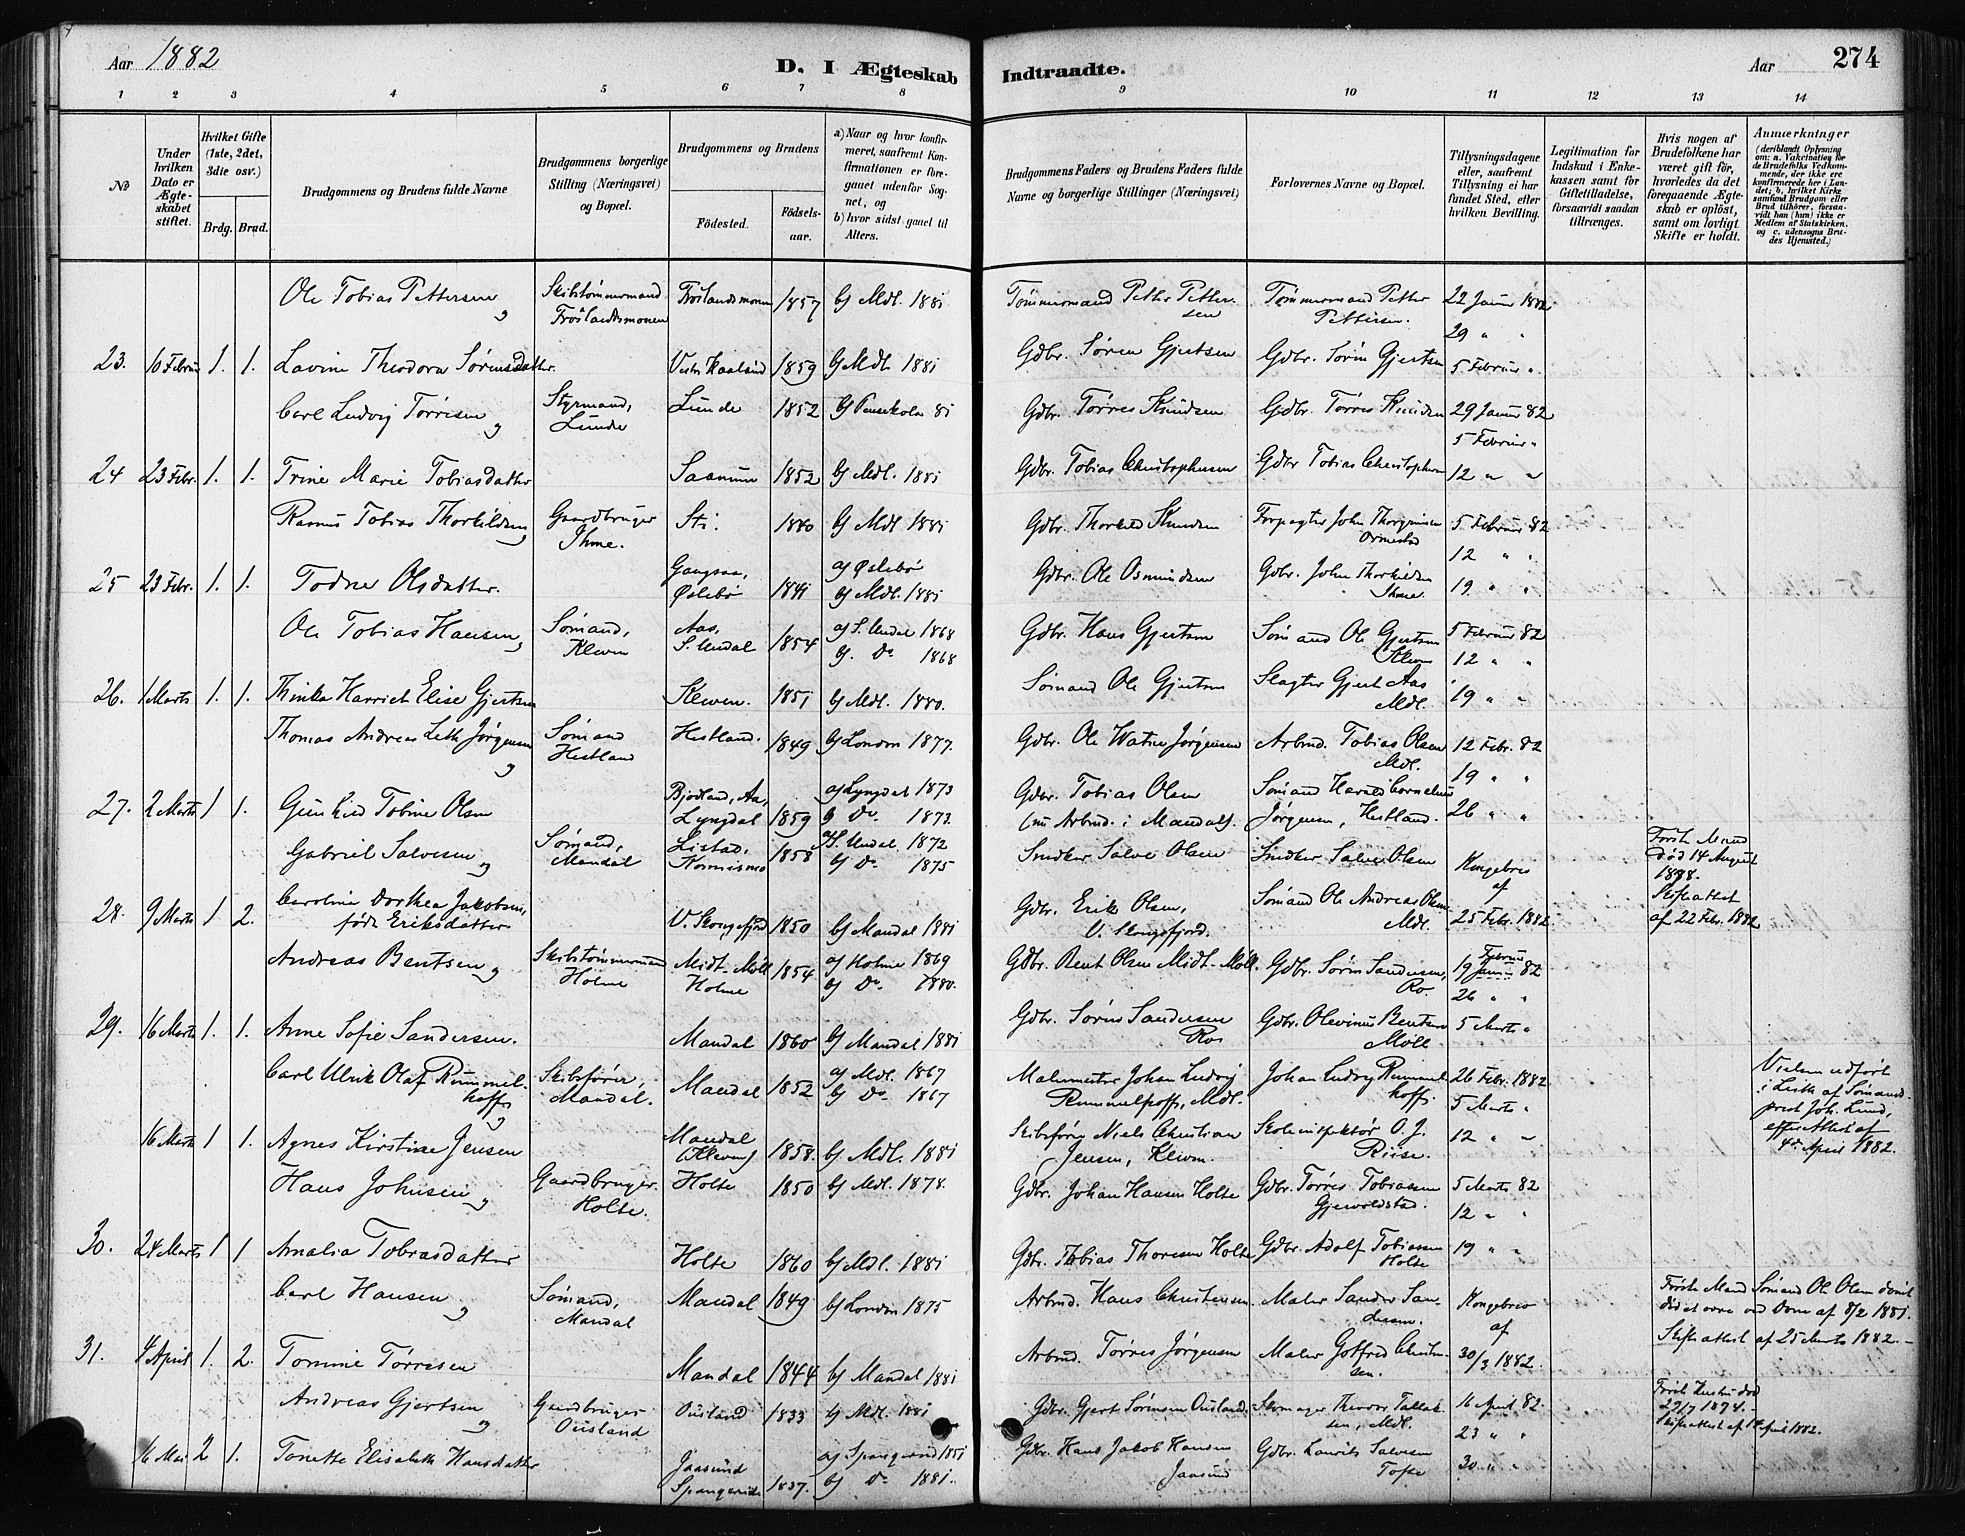 Aar 1882
D. I Ægteskab Indtraadte.
Aar 274
1 2 3 4 5 6 7 8 9 10 11 12 13 14
No
Under hvilken Dato er Ægteskabet stiftet.
Hvilket Gifte (1ste, 2det, 3die osv.)
Brdg. Brud.
Brudgommens og Brudens fulde Navne
Brudgommens borgerlige Stilling (Næringsvei) og Bopæl.
Brudgommens og Brudens
Fødested. Fødselsaar.
a) Naar og hvor konfirmeret, saafremt Konfirmationen er foregaaet udenfor Sognet, og
b) hvor sidst gaaet til Alters.
Brudgommens Faders og Brudens Faders fulde Navne og borgerlige Stillinger (Næringsvei)
Forlovernes Navne og Bopæl.
Tillysningsdagene eller, saafremt Tillysning ei har fundet Sted, efter hvilken Bevilling.
Legitimation for Indskud i Enkekassen samt for Giftetilladelse, forsaavidt saadan tiltrænges.
Hvis nogen af Brudefolkene har været gift før, hvorledes da det foregaaende Ægteskab er opløst, samt om lovligt Skifte er holdt.
Anmærkninger (deriblandt Oplysning om: a. Vakcination for de Brudefolks Vedkommende, der ikke ere konfirmerede her i Landet; b. hvilket Kirkesamfund Brudgom eller Brud tilhører, forsaavidt han (hun) ikke er Medlem af Statskirken. og c. udensogns Brudes Hjemsted.)
Ole Tobias Pettersen Skibstømmermand Frøslandsmonen Frøslandsmonen 1857 b) Mdl. 1881 Tømmermand Petter Pettersen Tømmermand Petter Pettersen. 22 Januar 1882
29 " "
23. 10 Februar 1. 1. Lavine Theodora Sørensdatter. 1859 b) Mdl. 1881 Gdbr. Søren Gjertsen Gdbr. Sørin Gjertsen 5 Februar ".
Carl Ludvig Tørresen Styrmand, Lunde Lunde 1852 b) Pensekola 81 Gdbr. Tørres Knudsen Gdbr. Tørres Knudsen 29 Januar 82
5 Februar "
24 23 Febr. 1. 1. Trine Marie Tobiasdatter Saanum 1852 b) Mdl. 1881 Gdbr. Tobias Christophersen Gdbr Tobias Christophersen 12 " "
Rasmus Tobias Thorkildsen Gaardbruger Ihme. Sti. b) Mdl 1881 Gdbr. Thorkild Knudsen Forpagter John Ormestad 5 Februar 82
12 " "
25 23 Febr. 1. 1. Todne Olsdatter. Øslebø a) Øslebø b) Mdl. 1881 Gdbr. Ole Osmundsen Gdbr. John Thorkildsen Ihme. 19 " "
Ole Tobias Hansen Sømand, Kleven Aas, S. Undal 1854 a) S. Undal 1868 b) Do 1868 Gdbr. Hans Gjertsen Sømand Ole Gjertsen Kleven 5 Februar 82
12 " "
26. 1 Marts 1. 1. Thinka Harriet Elise Gjertsen Kleven. 1851 b) Mdl. 1880. Sømand Ole Gjertsen Slagter Gjert Aas Mdl. 19 " "
Thomas Andreas Leth Jørgensen Sømand Hestland Hestland. 1849 b) London 1877. Gdbr. Ole Watne Jørgensen Arbmd. Tobias Olsen Mdl. 12 Febr. 82
19 " "
27. 2 Marts 1 1. Gunhild Tobine Olsen Bjodland, Aa, Lyngdal 1859 a) Lyngdal 1873 b) Do. 1873. Gdbr. Tobias Olsen (nu Arbmd. i Mandal). Sømand Harald Cornelius Jørgensen, Hestland. 26 " "
Gabriel Salvesen Sømand, Mandal 1858 a) H. Undal. 1872 b) Do. 1875 Snedker Salve Olsen Snedker Salve Olsen Kongebrev af 25 Febr. 1882
Første Mand død 14 August Skifteattest af 22 Febr. 1882
28. 9 Marts 1 2. Caroline Dorthea Jakobsen, født Eriksdatter V. Skongsfjord 1850 b) Mandal 1881 Gdbr. Erik Olsen, V. Skongsfjord. Sømand Ole Andreas Olsen Mdl.
Andreas Bentsen Skibstømmermand Holme Midt-Møll Holme 1854 a) Holme 1869 b) Do. 1880. Gdbr. Bent Olsen Midt-Møll. Gdbr. Sørin Sandersen, Ro. 19 Januar Februar 82
26 " "
29. 16 Marts 1. 1. Anne Sofie Sandersen. Mandal 1860 b) Mandal 1881 Gdbr. Sørin Sandersen Ro Gdbr. Olevinus Bentsen Møll 5 Marts "
Carl Ulrik Olaf Rummelhoff Skibsfører, Mandal. Mandal 1852 a) Mdl. 1867 b) Do 1867 Malermester Johan Ludvig Rummelhoff, Mdl. Johan Ludvig Rummelhoff. 26 Febr. 1882
5 Marts "
Vielsen udført i Leith af Sømandsprest Joh. Lund, efter Attest af 4de April 1882.
16 Marts 1 1. Agnes Kirstine Jensen Mandal (Kleven) 1858. b) Mdl. 1881 Skibsfører Niels Christian Jensen, Kleven. Skoleinspektør O. J. Riise. 12 " "
Hans Johnsen Gaardbruger. Holte. Holte 1850 b) Mdl. 1878. Gdbr. Johan Hansen Holte Gdbr. Tørres Tobiassen Gjervoldstad. 5 Marts 82
12 " "
30. 24 Marts 1 1 Amalia Tobiasdatter Holte 1860 b) Mdl. 1881 Gdbr. Tobias Thoresen Holte Gdbr. Adolf Tobiassen Holte 19 " "
Carl Hansen Sømand, Mandal Mandal 1849 b) London 1875 Arbmd. Hans Christensen Maler Sander Sandersen. Kongebrev af 30/3 1882.
Første Mand Sømand Ole Olsen dømt død at være ved Dom af 8/2 1881.
Skifteattest af 25 Marts 1882. -
31. 4 April 1. 2. Tomine Tørresen Mandal 1844 b) Mandal 1881 Arbmd. Tørres Jørgensen Maler Gotfred Christensen.
Andreas Gjertsen Gaardbruger Ousland Ousland 1833 b) Mdl. 1881 Gdbr. Gjert Sørensen Ousland. Skomager Theodor Tallaksen, Mdl. 16 April 82.
23 " "
Første Hustru død 29/7 1874. - Skifteattest af 14 April 1882.
16 Mai 2 1. Tonette Elisabeth Hansdatter Jaasund Spangereid 1837. a) Spangereid 1851 b) Do 1881. Gdbr. Hans Jakob Hansen Jaasund Gdbr. Laurits Salvesen Tofte 30 " "